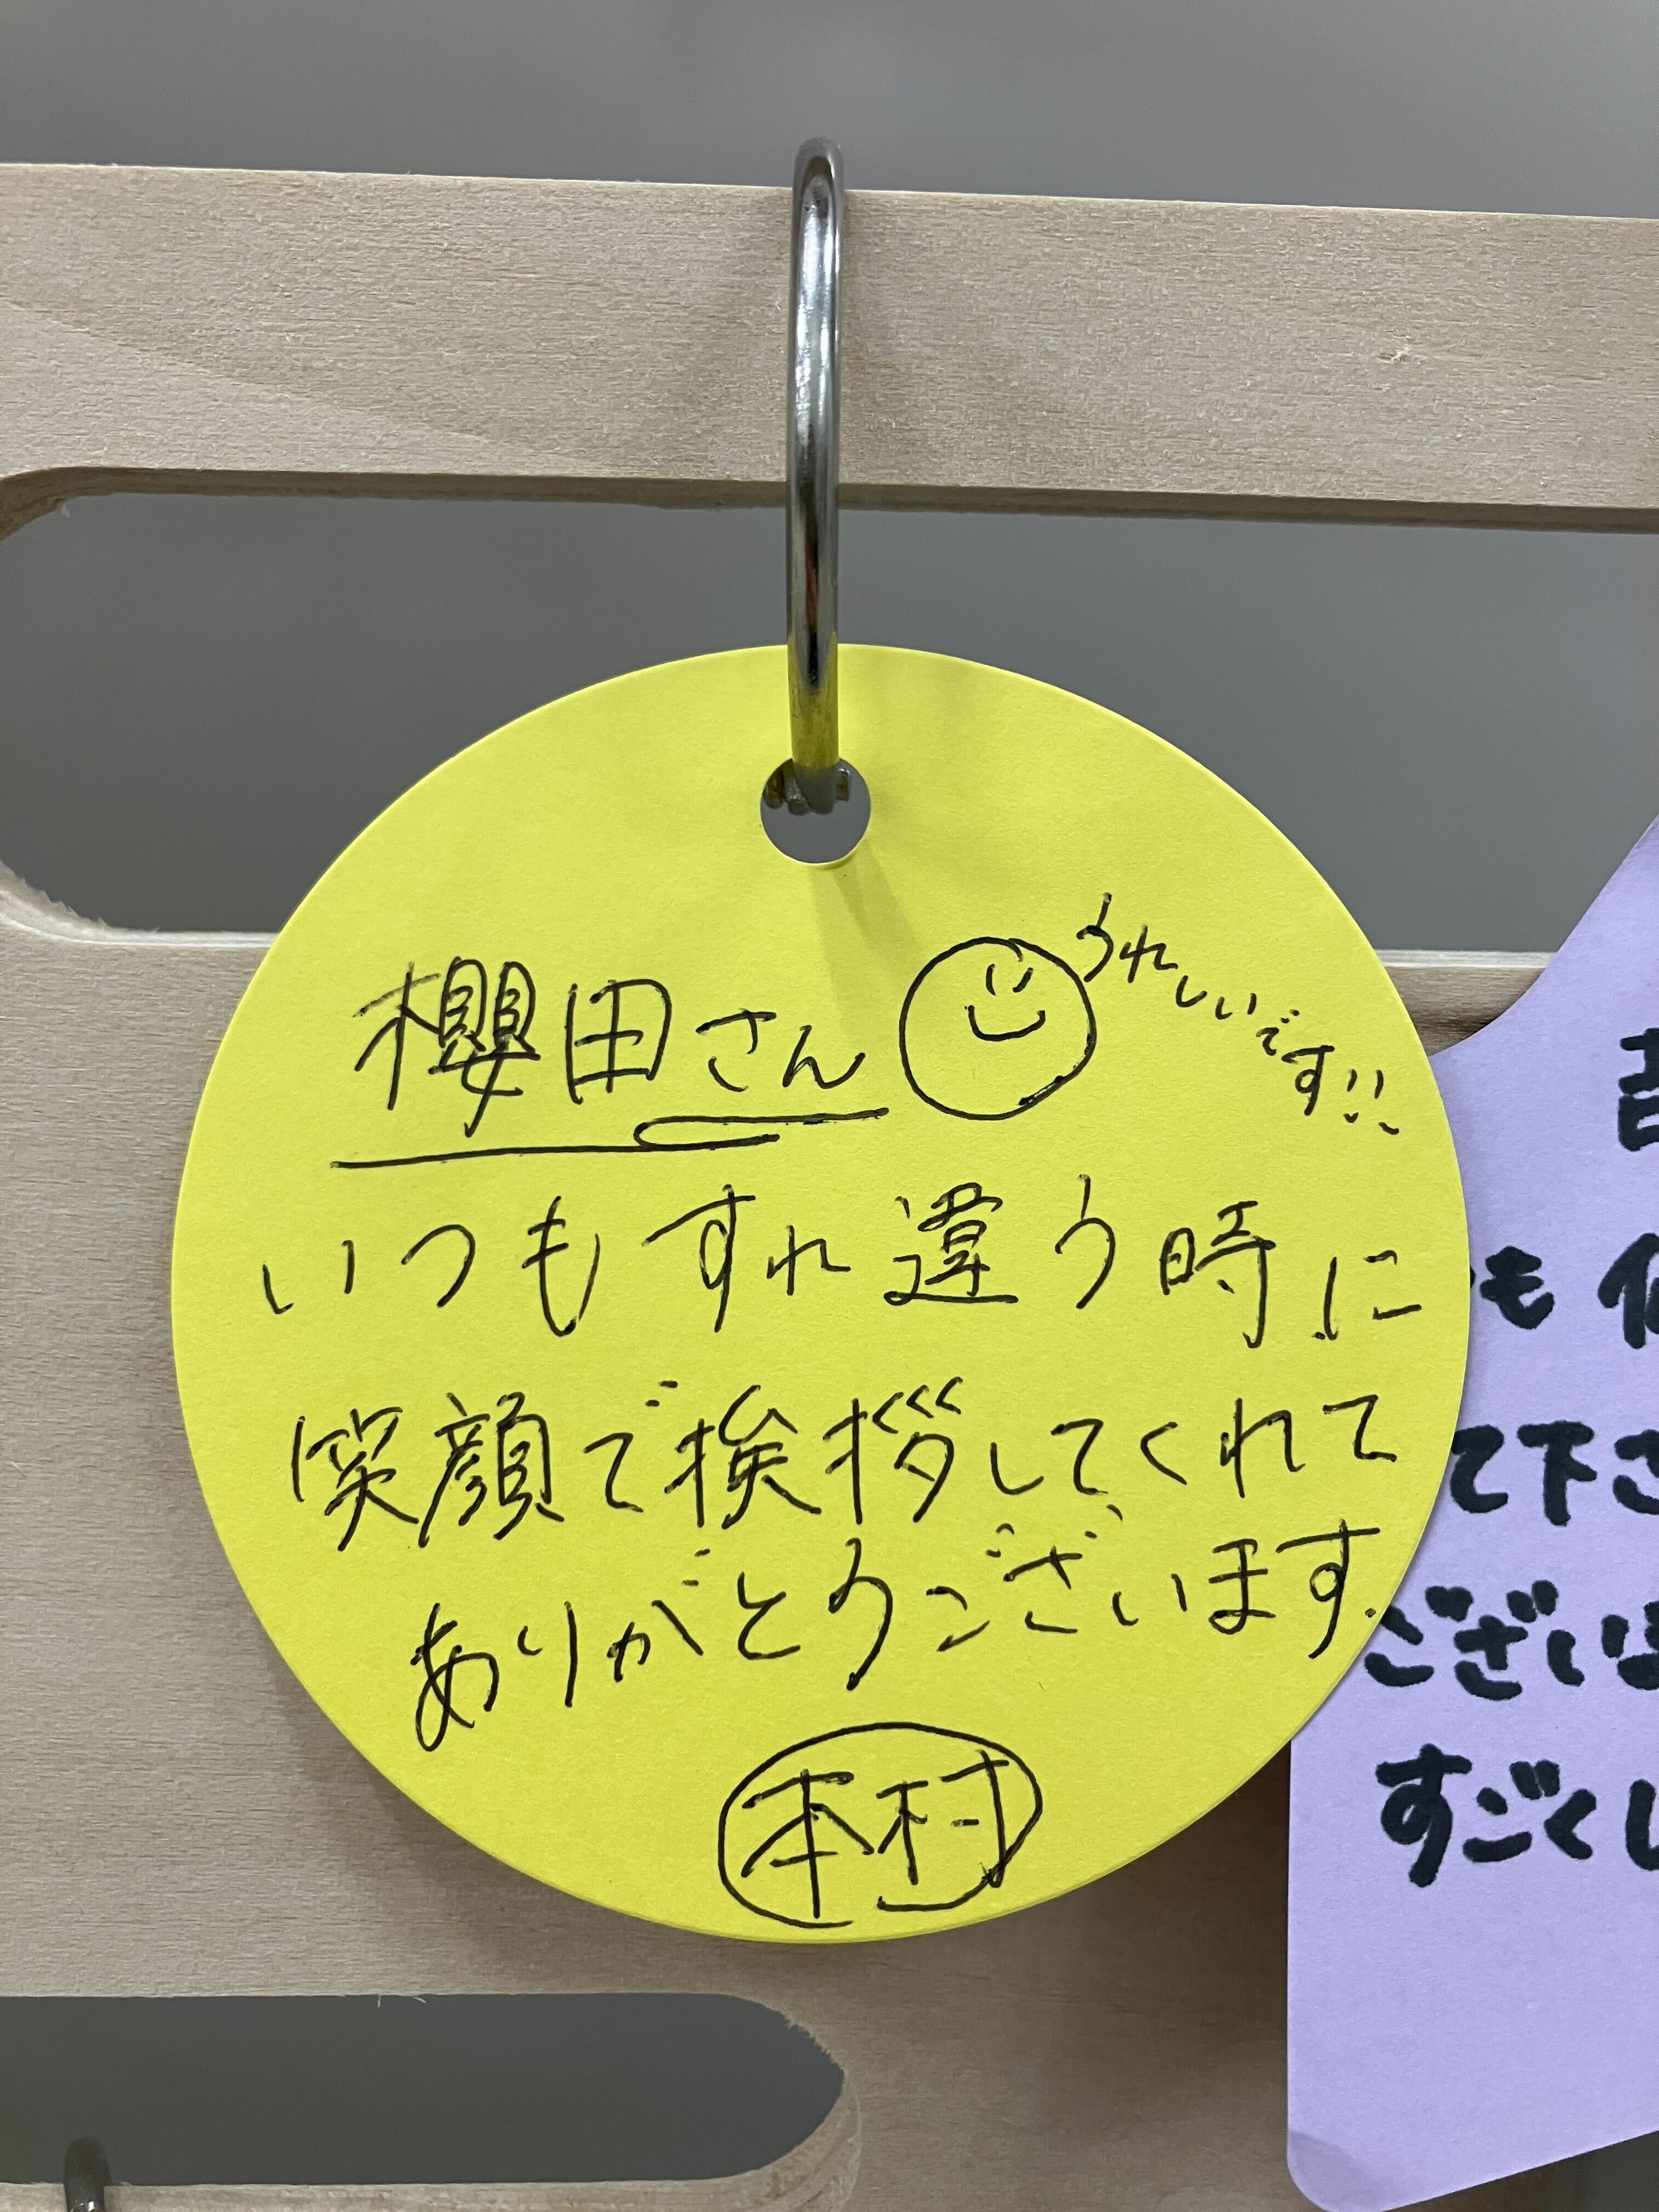 櫻田さん
うれしいです!!
いつもすれ違う時に
笑顔で挨拶してくれて
ありがとうございます.
本村
も
て下さ
ございま
すごくし